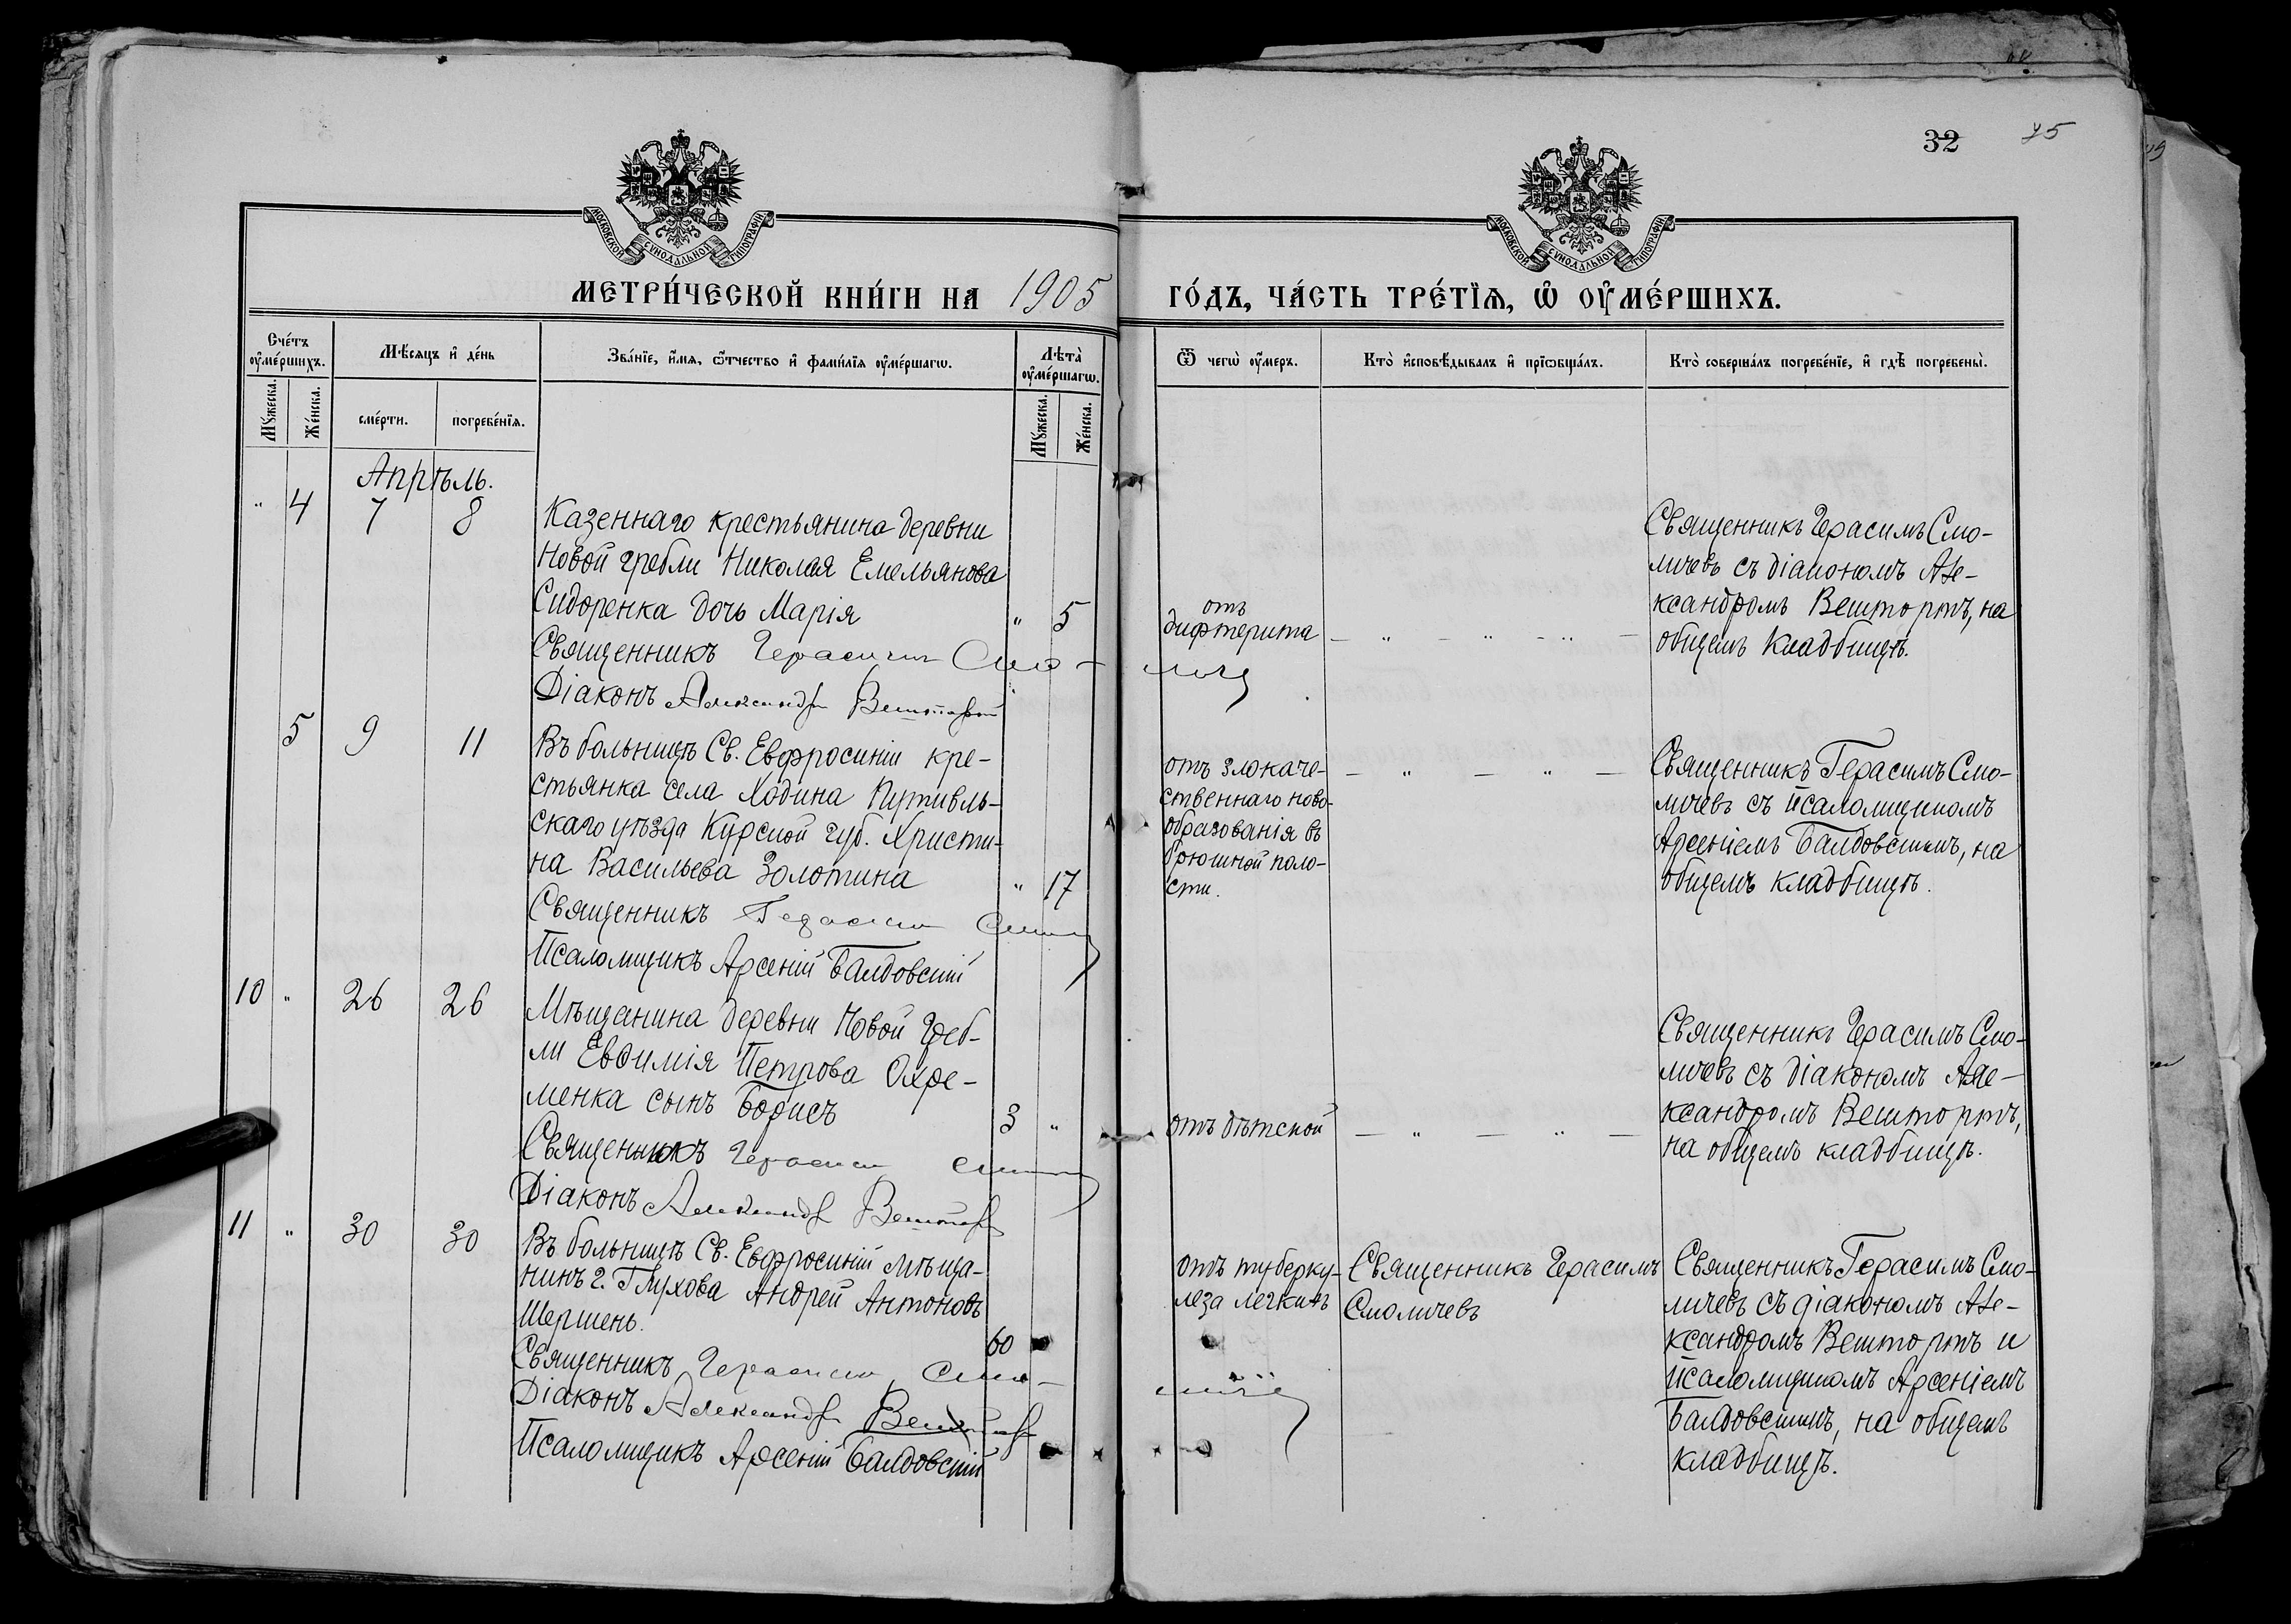 32
75
МОСКОВСКОЙ СѴНОДАЛЬНОЙ ТИПОГРАФІИ
МОСКОВСКОЙ СѴНОДАЛЬНОЙ ТИПОГРАФІИ
МЕТРИ́ЧЕСКОЙ КНИ́ГИ НА 1905 ГО́ДЪ, ЧА́СТЬ ТРЕ́ТІѦ, Ѡ҆ ОУ҆МЕ́РШИХЪ.
Сче́тъ оу҆ме́ршихъ.
Мѣ́сяцъ и҆ де́нь
Зва́нїе, и҆́мѧ, ѻ҆́тчество и҆ фами́лїѧ оу҆ме́ршагѡ.
Лѣ́та оу҆ме́ршагѡ.
Ѿ чегѡ̀ оу҆́меръ.
Кто̀ и҆сповѣ́дывалъ и҆ прїѡбща́лъ.
Кто̀ соверша́лъ погребе́нїе, и҆ гдѣ̀ погребены̀.
Мꙋ́жеска.
Же́нска.
сме́рти.
погребе́нїѧ.
Мꙋ́жеска.
Же́нска.
Апрѣль.
" 4 7 8
Казеннаго крестьянина деревни
Новой гребли Николая Емельянова
Сидоренка дочь Марія " 5
Священникъ Герасимъ Смо-личевъ
Діаконъ Александръ Вешторт
отъ
дифтерита
— " — " — " —
Священникъ Герасимъ Смо-
личевъ съ діакономъ Але-
ксандромъ Вештортъ, на
общемъ кладбищѣ.
5 9 11
Въ больницѣ Св. Евфросиніи кре-
стьянка села Ходина Путивль-
скаго уѣзда Курской губ. Христи-
на Васильева Золотина " 17
Священникъ Герасимъ Смолич
Псаломщикъ Арсеній Балдовскій
отъ злокаче-
ственнаго ново-
образованія въ
брюшной поло-
сти.
— " — " —
Священникъ Герасимъ Смо-
личевъ съ псаломщикомъ
Арсеніемъ Балдовскимъ, на
общемъ кладбищѣ.
10 " 26 26
Мѣщанина деревни Новой Греб-
ли Евфимія Петрова Охре-
менка сынъ Борисъ 3 "
Священникъ Герасим Смолич
Діаконъ Александръ Вешторт
отъ дѣтской
— " — " —
Священникъ Герасимъ Смо-
личевъ съ діакономъ Але-
ксандромъ Вештортъ,
на общемъ кладбищѣ.
11 " 30 30
Въ больницѣ Св. Евфросиніи мѣща-
нинъ г. Глухова Андрей Антоновъ
Шершень. 60
Священникъ Герасимъ Смо-личев
Діаконъ Александръ Вешторт
Псаломщикъ Арсеній Балдовскій
отъ туберку-
леза легкихъ
Священникъ Герасимъ
Смоличевъ
Священникъ Герасимъ Смо-
личевъ съ діакономъ Але-
ксандромъ Вештортъ и
псаломщикомъ Арсеніемъ
Балдовскимъ, на общемъ
кладбищѣ.